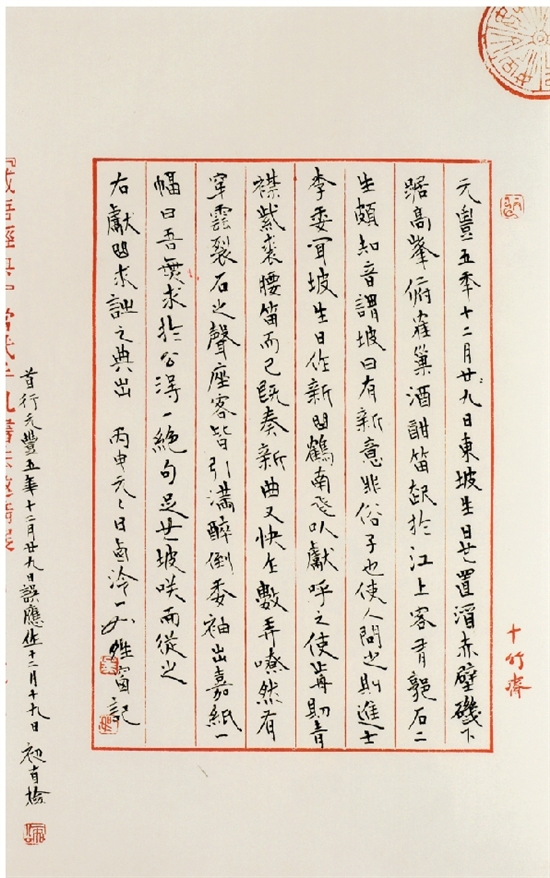 元豐五年十二月廿九日東坡生日也置酒赤壁磯下
踞高峯俯雀巢酒酣笛起於江上客有郭石二
生頗知音謂坡曰有新意非俗子也使人問之則進士
李委聞坡生日作新曲鶴南飛以獻呼之使前則青
襟紫裘腰笛而已既奏新曲又快作數弄嘹然有
穿雲裂石之聲座客皆引滿醉倒委袖出嘉紙一
幅曰吾無求於公得一絕句足也坡笑而從之
右獻曲求詩之典出 丙申元々日
首行元豐五年十二月廿九日誤應作十二月十九日
十竹齋